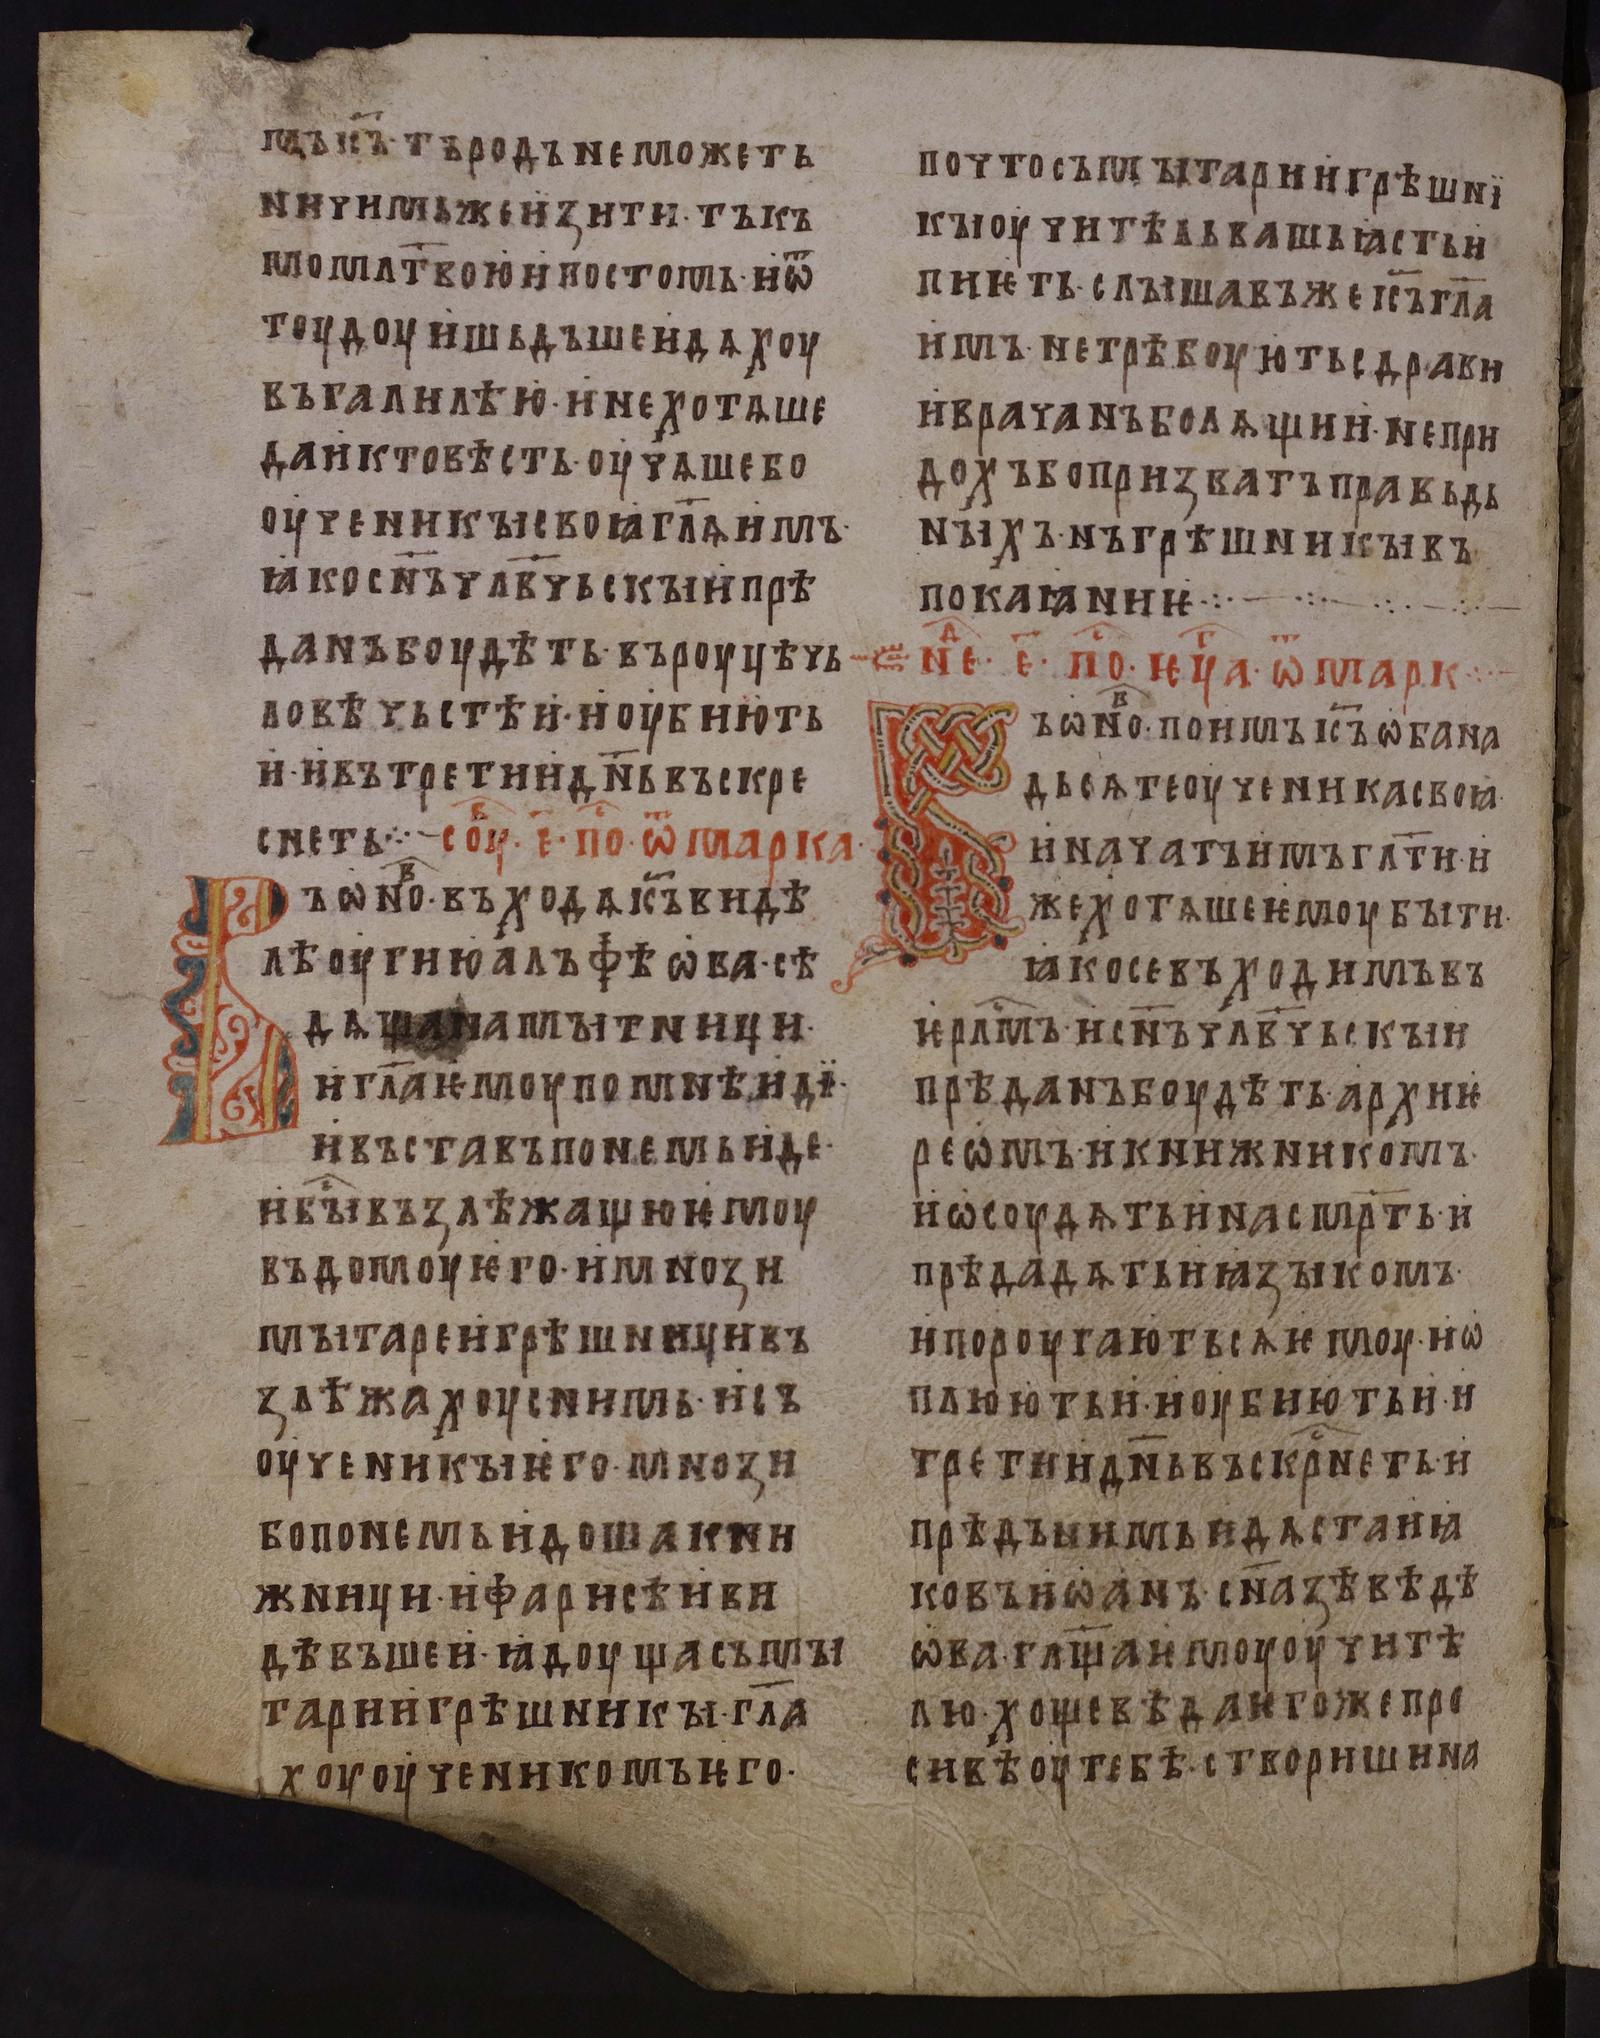 мъ іс҃ъ· тъ родъ не можеть
ничимь же изити· тъкъ
мо мл҃твою и постомь· и ѿ
тоудоу ишьдъше идѧхоу
въ галилѣю· и не хотѧше
да и кто вѣсть· оучѧше бо
оученикы своꙗ гл҃ѧ имъ·
ꙗко сн҃ъ чл҃вчьскыи прѣ
данъ боудѣть· въ роуцѣ чь
ловѣчьстѣи· и оубиють
и· и въ третии дн҃ь въскрь
снеть· соу· е· по· ѿ марка·
ъ ѡно· въходѧ іс҃ъ видѣ
лѣоугию алъфѣѡва· сѣ
дѧща на мытници·
и гл҃а ѥмоу по мнѣ иди·
и въставъ по немь иде·
и бы възлѣжащю ѥмоу
въ домоу ѥго· и мнози
мытаре и грѣшници въ
злѣжахоу с нимь· и съ
оученикы ѥго· мнози
бо по немь идоша кни
жници· и фарисѣи ви
дѣвъше и· ꙗдоуща съ мы
тари и грѣшникы· гл҃а
хоу оученикомъ ѥго·
почто съ мытари и грѣшнї
кы оучитѣль вашь ꙗсть и
пиѥть· слышавъ же іс҃ъ гл҃а
имъ· не трѣбоують сдрави
и врача нъ болѧщии· не при
дохъ бо призватъ правьдь
ныхъ· нъ грѣшникы въ
покаꙗниѥ
не· е· по· ѥуа· ѿ марк
ъ ѡно· поимъ іс҃ъ ѡба на
десѧте оученика своꙗ·
и начатъ имъ гл҃ти· и
же хотѧше ѥмоу быти·
ꙗко се въходимъ въ
ѥрлмъ· и сн҃ъ чл҃вчьскыи
прѣданъ боудѣть· архиѥ
реѡмъ· и книжникомъ·
и ѡсоудѧть и на смр҃ть· и
прѣдадѧть и ꙗзыкомъ·
и пороугають сѧ ѥмоу· и ѡ
плюють и· и оубиють и· и
третии дн҃ь въскрнеть· и
прѣдъ нимь идѧста иꙗ
ковъ и ѡанъ· сн҃а зѣвѣдѣ
ѡва· гл҃ща ѥмоу оучитѣ
лю· хощевѣ да ѥгоже про
сивѣ оу тебѣ· створиши на